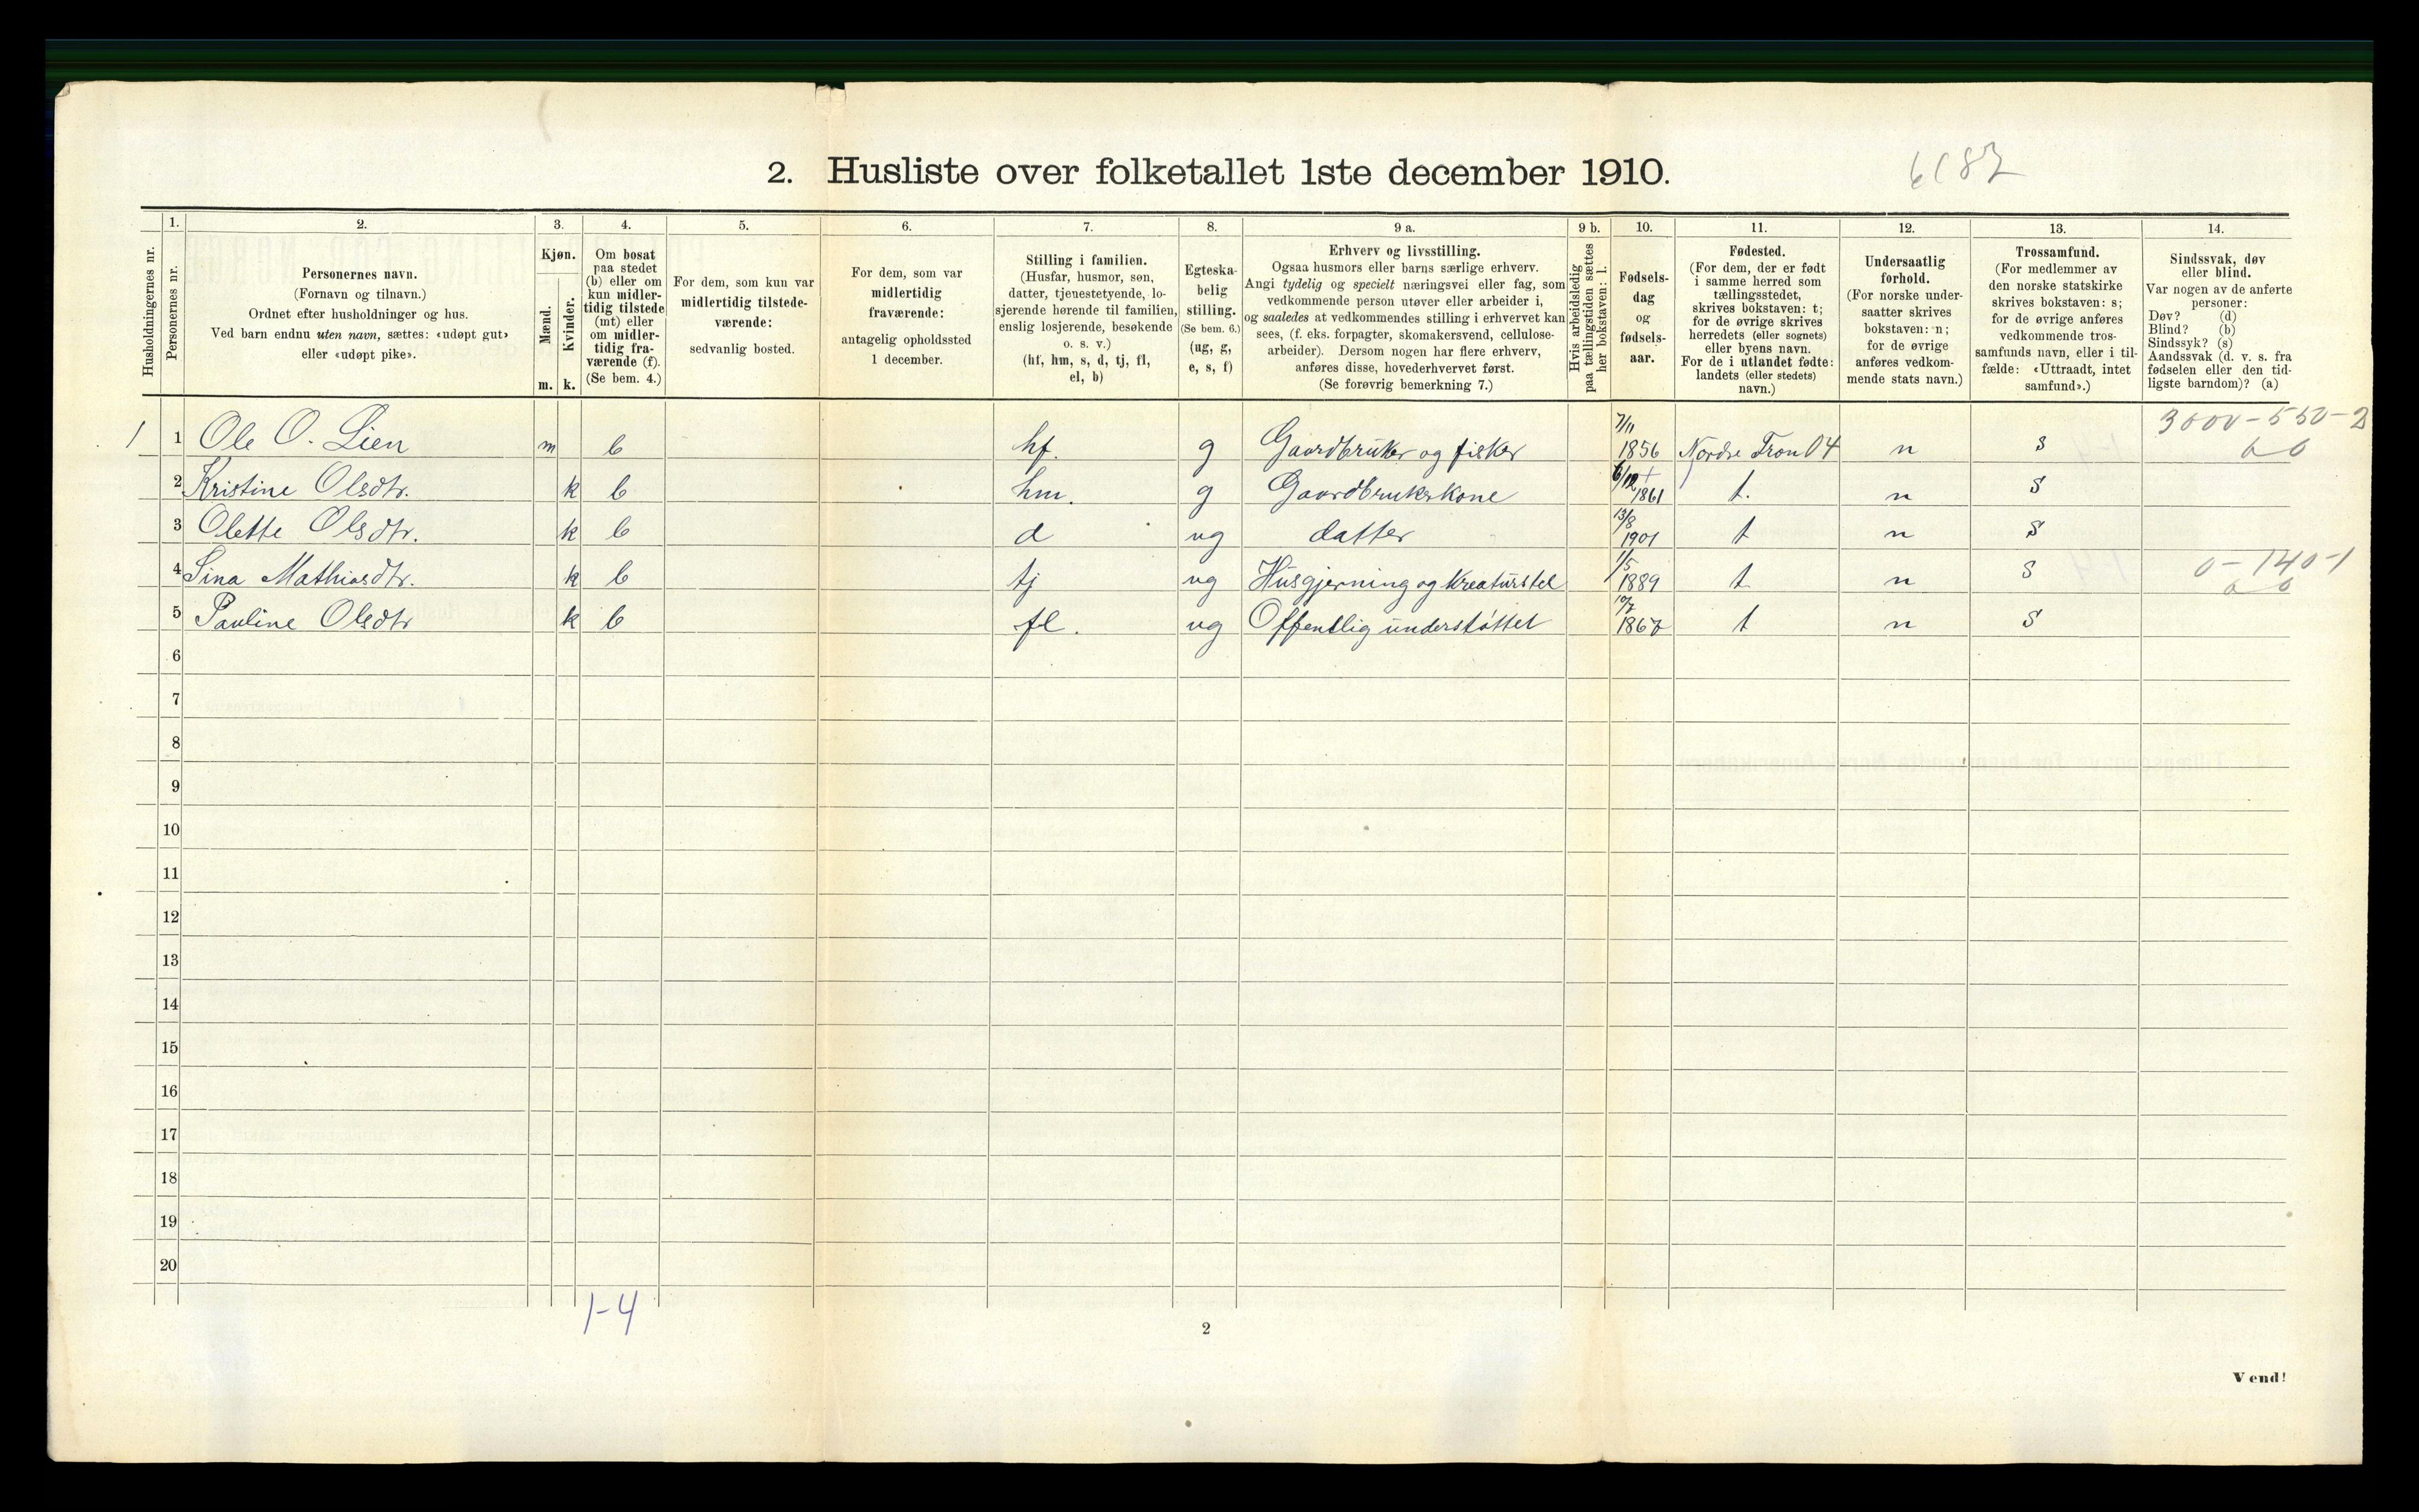 2. Husliste over folketallet 1ste december 1910.
Husholdningernes nr.
1.
Personernes nr.
2.
Personernes navn.
(Fornavn og tilnavn.)
Ordnet efter husholdninger og hus.
Ved barn endnu uten navn, sættes: «udøpt gut»
eller «udøpt pike».
3.
Kjøn.
Mænd.
m.
Kvinder.
k.
4.
Om bosat
paa stedet
(b) eller om
kun midler-
tidig tilstede
(mt) eller
om midler-
tidig fra-
værende (f).
(Se bem. 4.)
5.
For dem, som kun var
midlertidig tilstede-
værende:
sedvanlig bosted.
6.
For dem, som var
midlertidig
fraværende:
antagelig opholdssted
1 december.
7.
Stilling i familien.
(Husfar, husmor, søn,
datter, tjenestetyende, lo-
sjerende hørende til familien,
enslig losjerende, besøkende
o. s. v.)
(hf, hm, s, d, tj, fl,
el, b)
8.
Egteska-
belig
stilling.
(Se bem. 6.)
(ug, g,
e, s, f)
9 a.
Erhverv og livsstilling.
Ogsaa husmors eller barns særlige erhverv.
Angi tydelig og specielt næringsvei eller fag, som
vedkommende person utøver eller arbeider i,
og saaledes at vedkommendes stilling i erhvervet kan
sees, (f. eks. forpagter, skomakersvend, cellulose-
arbeider). Dersom nogen har flere erhverv,
anføres disse, hovederhvervet først.
(Se forøvrig bemerkning 7.)
9 b.
Hvis arbeidsledig
paa tællingstiden sættes
her bokstaven: l.
10.
Fødsels-
dag
og
fødsels-
aar.
11.
Fødested.
(For dem, der er født
i samme herred som
tællingsstedet,
skrives bokstaven: t;
for de øvrige skrives
herredets (eller sognets)
eller byens navn.
For de i utlandet fødte:
landets (eller stedets)
navn.)
12.
Undersaatlig
forhold.
(For norske under-
saatter skrives
bokstaven: n;
for de øvrige
anføres vedkom-
mende stats navn.)
13.
Trossamfund.
(For medlemmer av
den norske statskirke
skrives bokstaven: s;
for de øvrige anføres
vedkommende tros-
samfunds navn, eller i til-
fælde: «Uttraadt, intet
samfund».)
14.
Sindssvak, døv
eller blind.
Var nogen av de anførte
personer:
Døv? (d)
Blind? (b)
Sindssyk? (s)
Aandssvak (d. v. s. fra
fødselen eller den tid-
ligste barndom)? (a)
3000-550-2
1 1 Ole O. Lien m b hf. g Gaardbruker og fisker 7/11 1856 Nordre Fron 04 n s
2 Kristine Olsdtr. k b hm. g Gaardbrukerkone 6/12 1861 t. n s
3 Olette Olsdtr. k b d ug datter 13/8 1901 t n s
4 Sina Mathiasdtr. k b tj ug Husgjerning og Kreaturstel 1/5 1889 t n s 0-140-1
5 Pauline Olsdtr k b fl. ug Offentlig understøttet 10/7 1867 t n s
6
7
8
9
10
11
12
13
14
15
16
17
18
19
20
1-4
2
Vend!